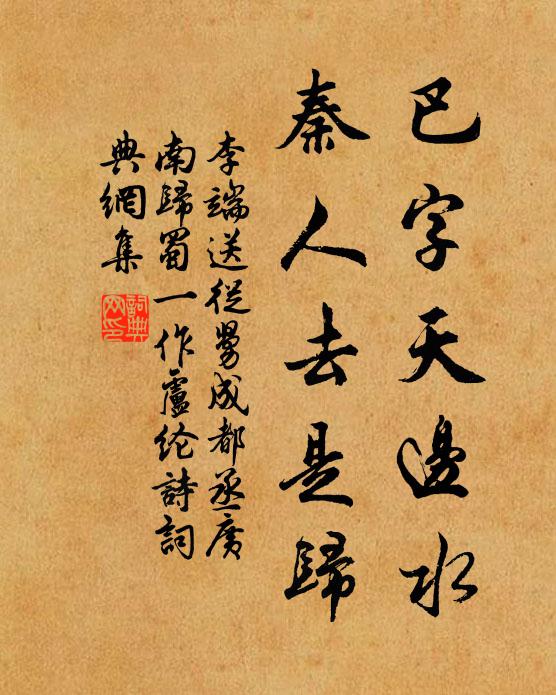 巴字天邊水
秦人去是歸
李端送從舅成都丞廣
南歸蜀一作盧纶詩詞
典網集
詞典
网印